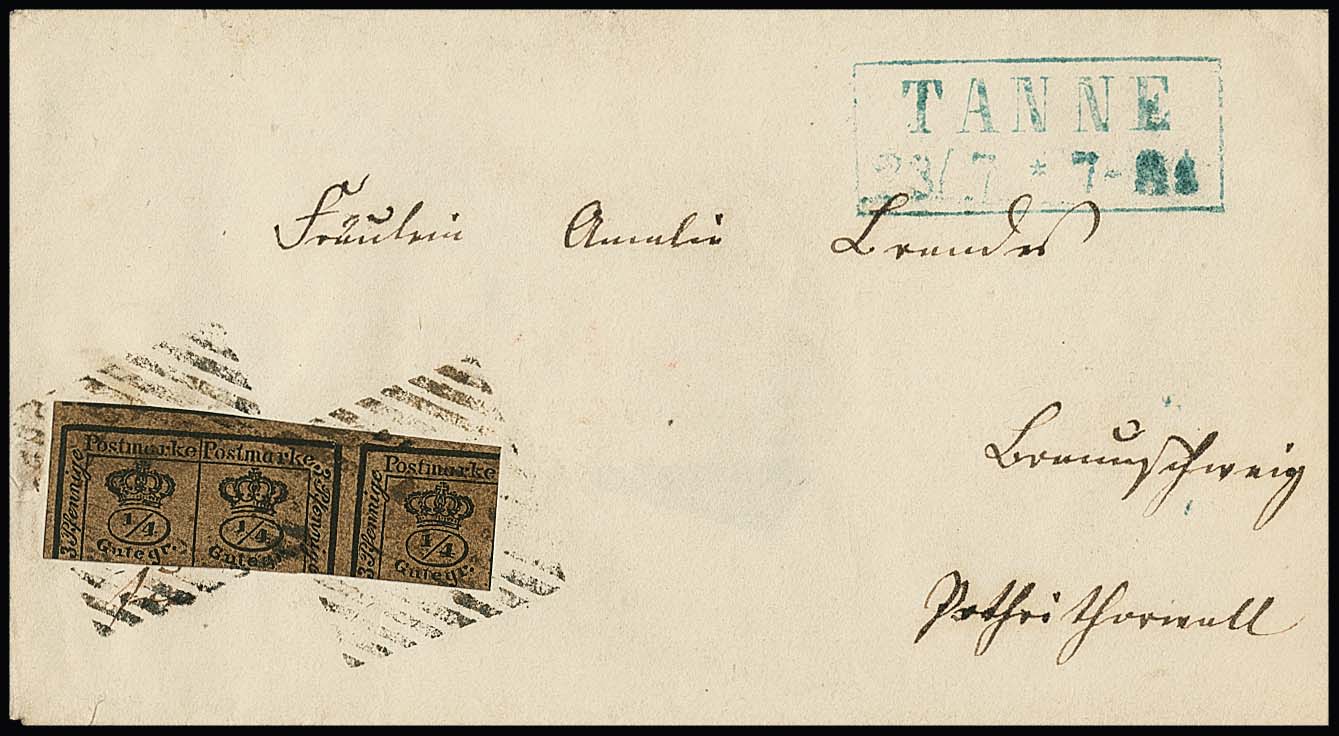 TANNE
23/7 * 7-
Fräulein Amalie Brandes
Braunschweig
Petrithorwall
Postmarke Postmarke. Postmarke
3 Pfennige 3 Pfennige 3 Pfennige
1/4 1/4 1/4
Gutegr. Gutegr. Gutegr.